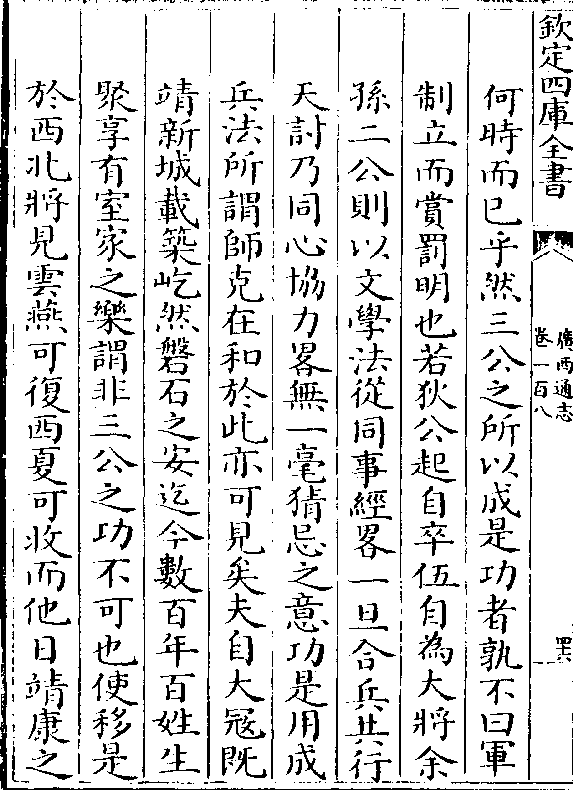 欽定四庫全書
廣西通志
卷一百八
何時而已乎然三公之所以成是功者孰不曰軍
制立而賞罰明也若狄公起自卒伍自為大將余
孫二公則以文學法從同事經畧一旦合兵共行
天討乃同心協力畧無一毫猜忌之意功是用成
兵法所謂師克在和於此亦可見矣夫自大寇既
靖新城載築屹然磐石之安迄今數百年百姓生
聚享有室家之樂謂非三公之功不可也使移是
於西北將見雲燕可復西夏可收而他日靖康之